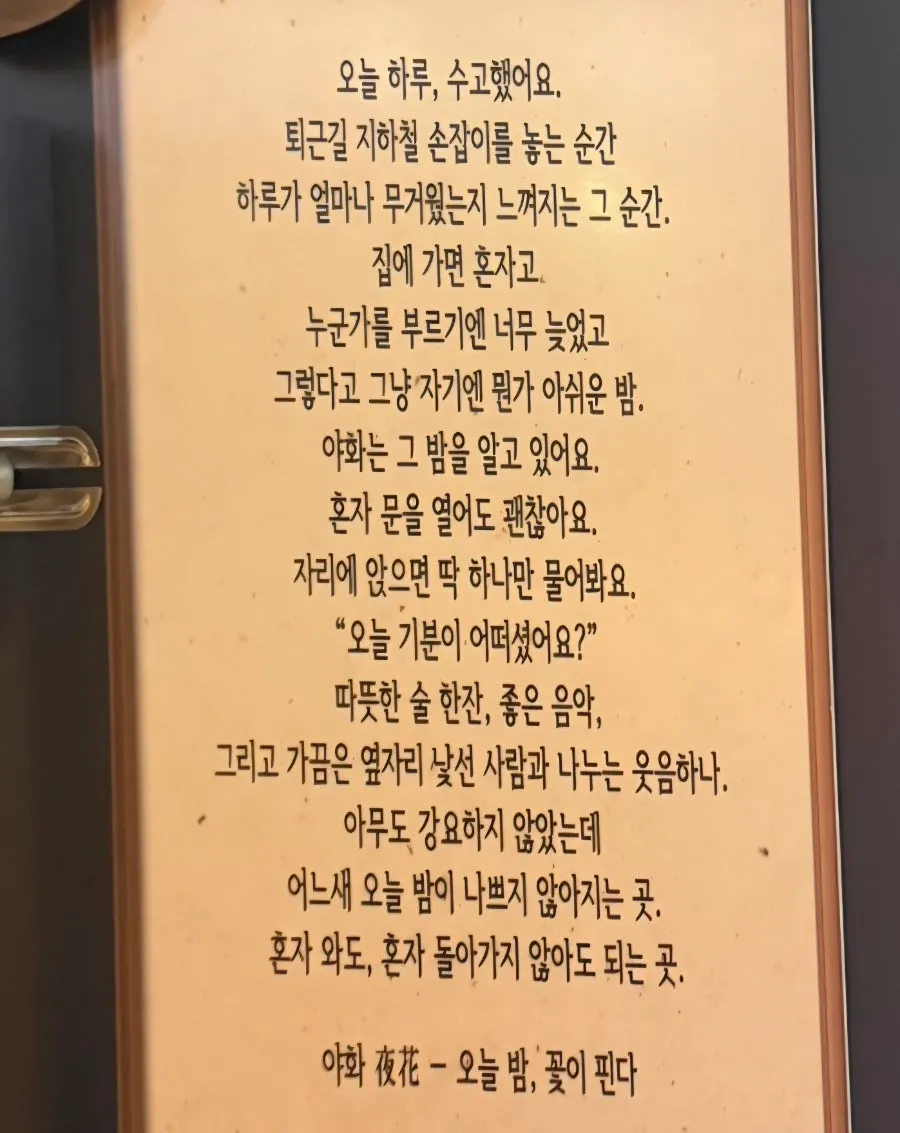 오늘 하루, 수고했어요.
퇴근길 지하철 손잡이를 놓는 순간
하루가 얼마나 무거웠는지 느껴지는 그 순간.
집에 가면 혼자고
누군가를 부르기엔 너무 늦었고
그렇다고 그냥 자기엔 뭔가 아쉬운 밤.
야화는 그 밤을 알고 있어요.
혼자 문을 열어도 괜찮아요.
자리에 앉으면 딱 하나만 물어봐요.
“오늘 기분이 어떠셨어요?”
따뜻한 술 한잔, 좋은 음악,
그리고 가끔은 옆자리 낯선 사람과 나누는 웃음하나.
아무도 강요하지 않았는데
어느새 오늘 밤이 나쁘지 않아지는 곳.
혼자 와도, 혼자 돌아가지 않아도 되는 곳.
야화 夜花 – 오늘 밤, 꽃이 핀다